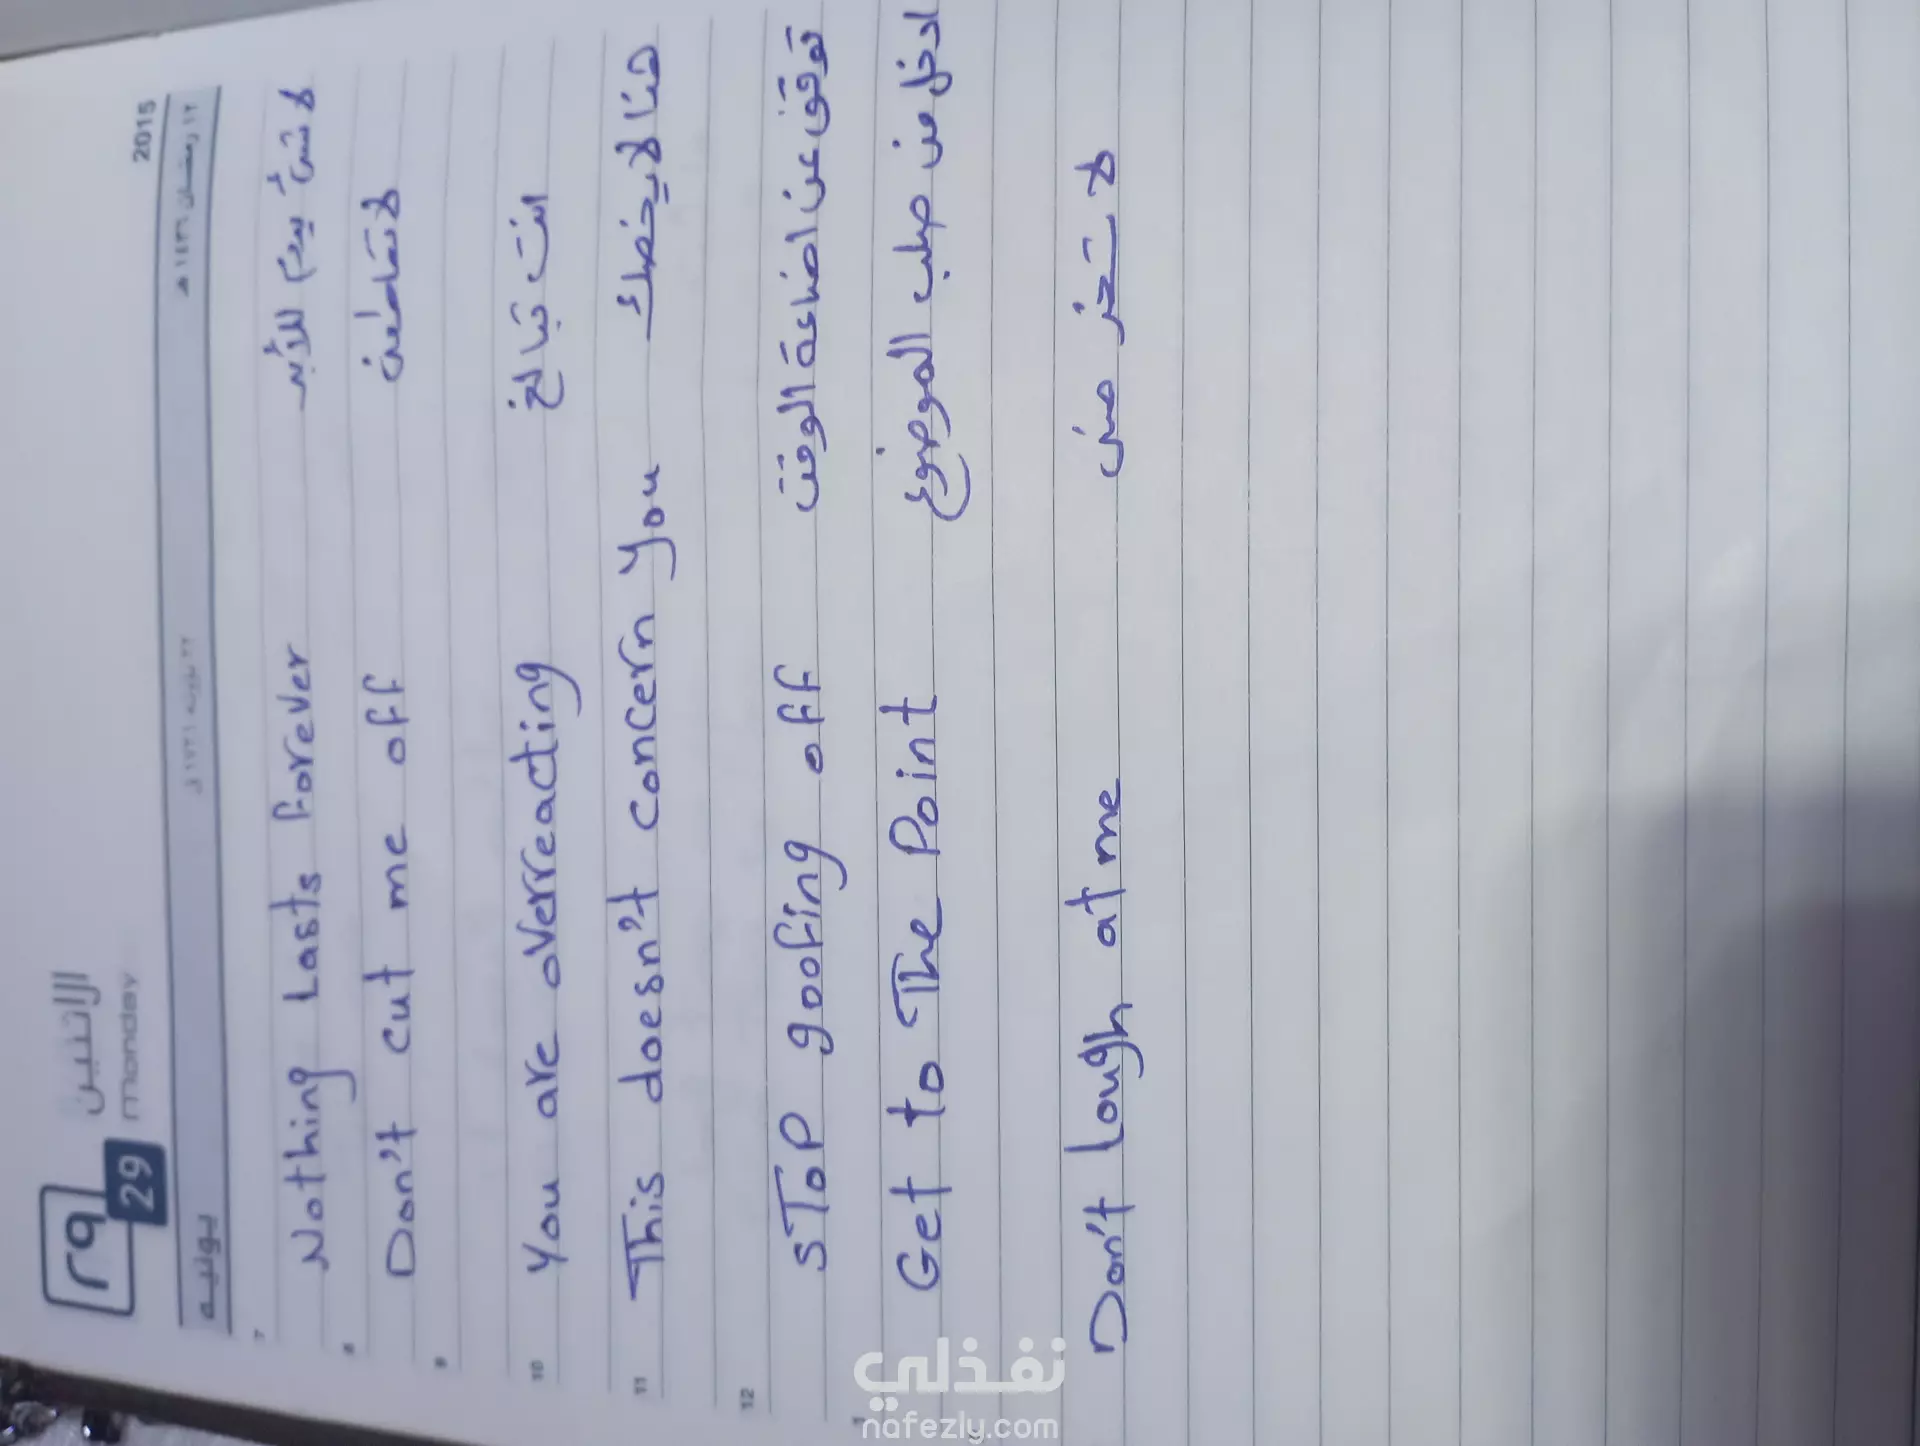 ٢٩
29
الاثنين
monday
2015
يونيه
١٢ رمضان ١٤٣٦ هـ
7
Nothing Lasts forever لا شئ يدوم للأبد
8
Don't cut me off لا تقاطعني
9
10
You are overreacting انت تبالغ
11
This doesn't concern you هذا لا يخصك
12
sTop goofing off توقف عن اضاعة الوقت
1
Get to The Point ادخل من صلب الموضوع
Don't lough at me لا تسخر مني
نفذلي
nafezly.com